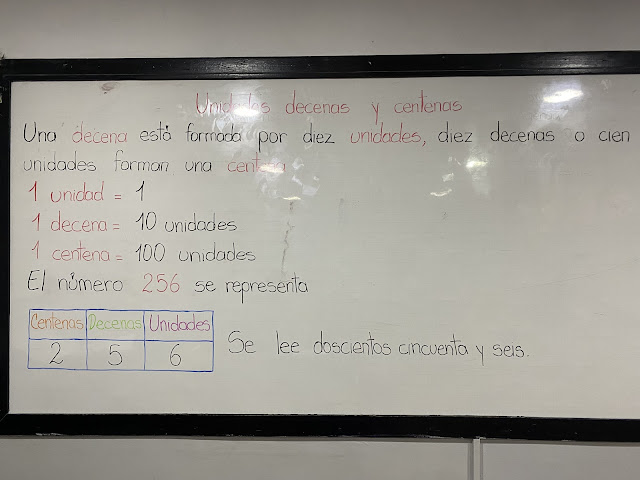 Unidades decenas y centenas
Una decena está formada por diez unidades, diez decenas o cien
unidades forman una centena
1 unidad = 1
1 decena = 10 unidades
1 centena = 100 unidades
El número 256 se representa
Centenas Decenas Unidades
2 5 6
Se lee doscientos cincuenta y seis.